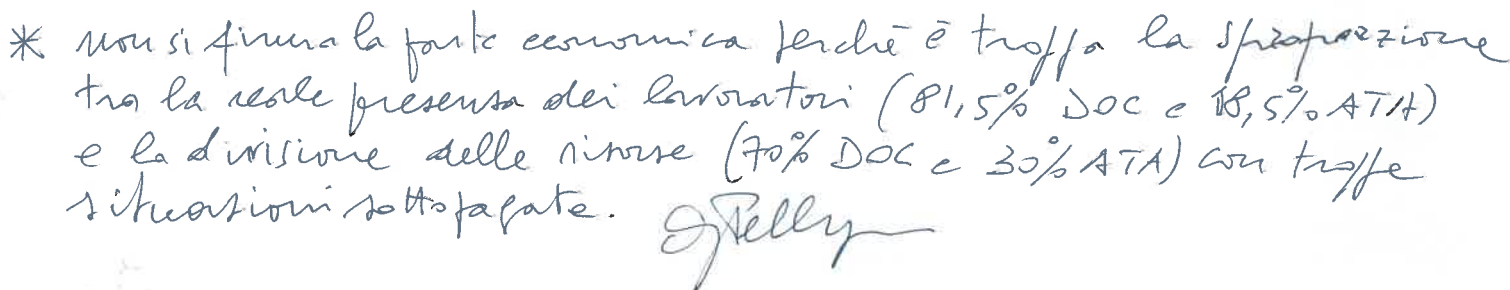 * non si firma la parte economica perché è troppa la sproporzione
tra la reale presenza dei lavoratori (81,5% DOC e 18,5% ATA)
e la divisione delle risorse (70% DOC e 30% ATA) con troppe
situazioni sottopagate.